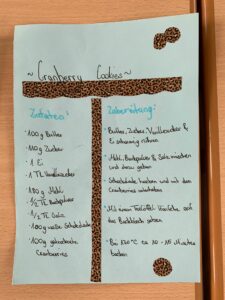 ~ Cranberry Cookies ~
Zutaten:
- 100g Butter
- 110g Zucker
- 1 Ei
- 1 TL Vanillezucker
- 180g Mehl
- 1/2 TL Backpulver
- 1/2 TL Salz
- 100g weiße Schokolade
- 100g getrocknete
Cranberries
Zubereitung:
- Butter, Zucker, Vanillezucker &
Ei schaumig rühren
- Mehl, Backpulver & Salz mischen
und dazu geben
- Schokolade hacken und mit den
Cranberries unterheben
- Mit einem Teelöffel Häufchen auf
das Backblech geben
- Bei 170°C ca 10-15 Minuten
backen